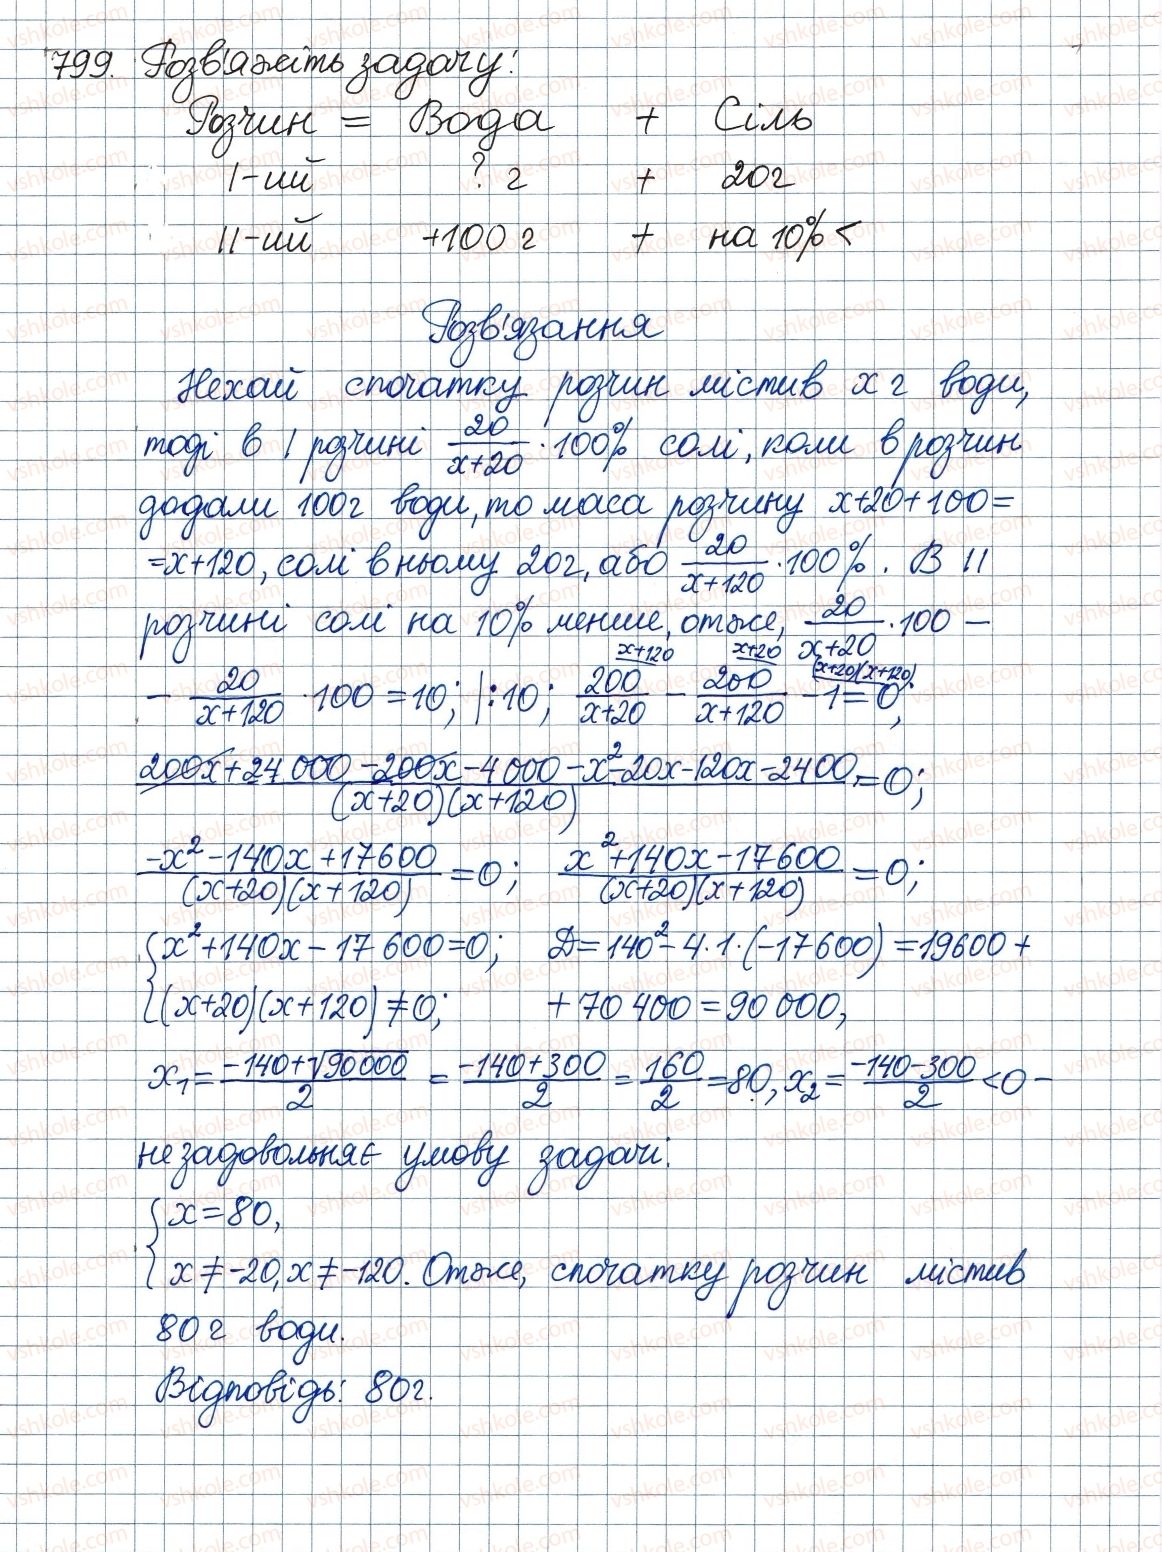 799. Розв'яжіть задачу:
Розчин = Вода + Сіль
I-ий ? г + 20г
II-ий +100 г + на 10% <
Розв'язання
Нехай спочатку розчин містив x г води,
тоді в I розчині 20/(x+20) · 100% солі, коли в розчин
додали 100г води, то маса розчину x+20+100=
=x+120, солі в ньому 20г, або 20/(x+120) · 100%. В II
розчині солі на 10% менше, отже, 20/(x+20) · 100 −
− 20/(x+120) · 100 = 10; |:10; 200/(x+20) (x+120) − 200/(x+120) (x+20) − 1 = 0 (x+20)(x+120);
(200x+24 000−200x−4 000−x²−20x−120x−2400)/((x+20)(x+120)) = 0;
(−x²−140x+17600)/((x+20)(x+120)) = 0; (x²+140x−17600)/((x+20)(x+120)) = 0;
{ x²+140x−17 600=0; D=140²−4·1·(−17600)=19600+
(x+20)(x+120)≠0; +70 400=90 000,
x₁=(−140+√90000)/2 = (−140+300)/2 = 160/2 = 80, x₂=(−140−300)/2 <0 −
не задовольняє умову задачі.
{ x=80,
x≠−20, x≠−120. Отже, спочатку розчин містив
80 г води.
Відповідь: 80г.